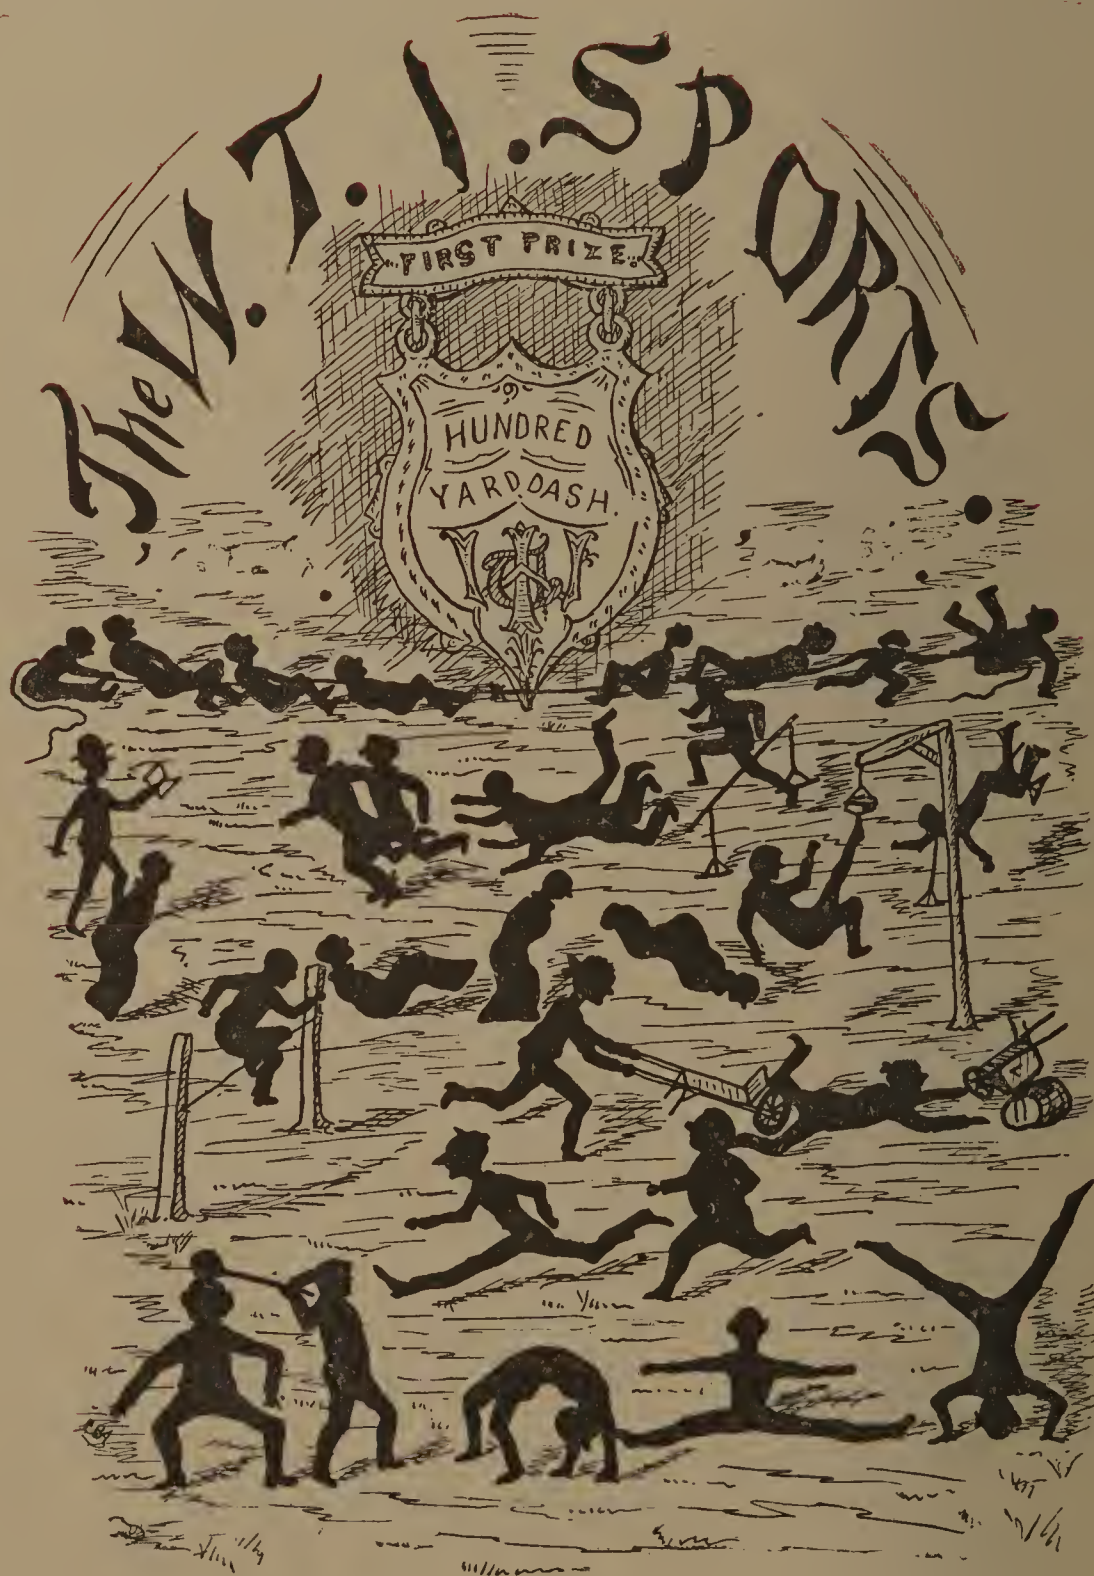 The W. T. I. SPORTS.
FIRST PRIZE.
HUNDRED
YARD DASH.